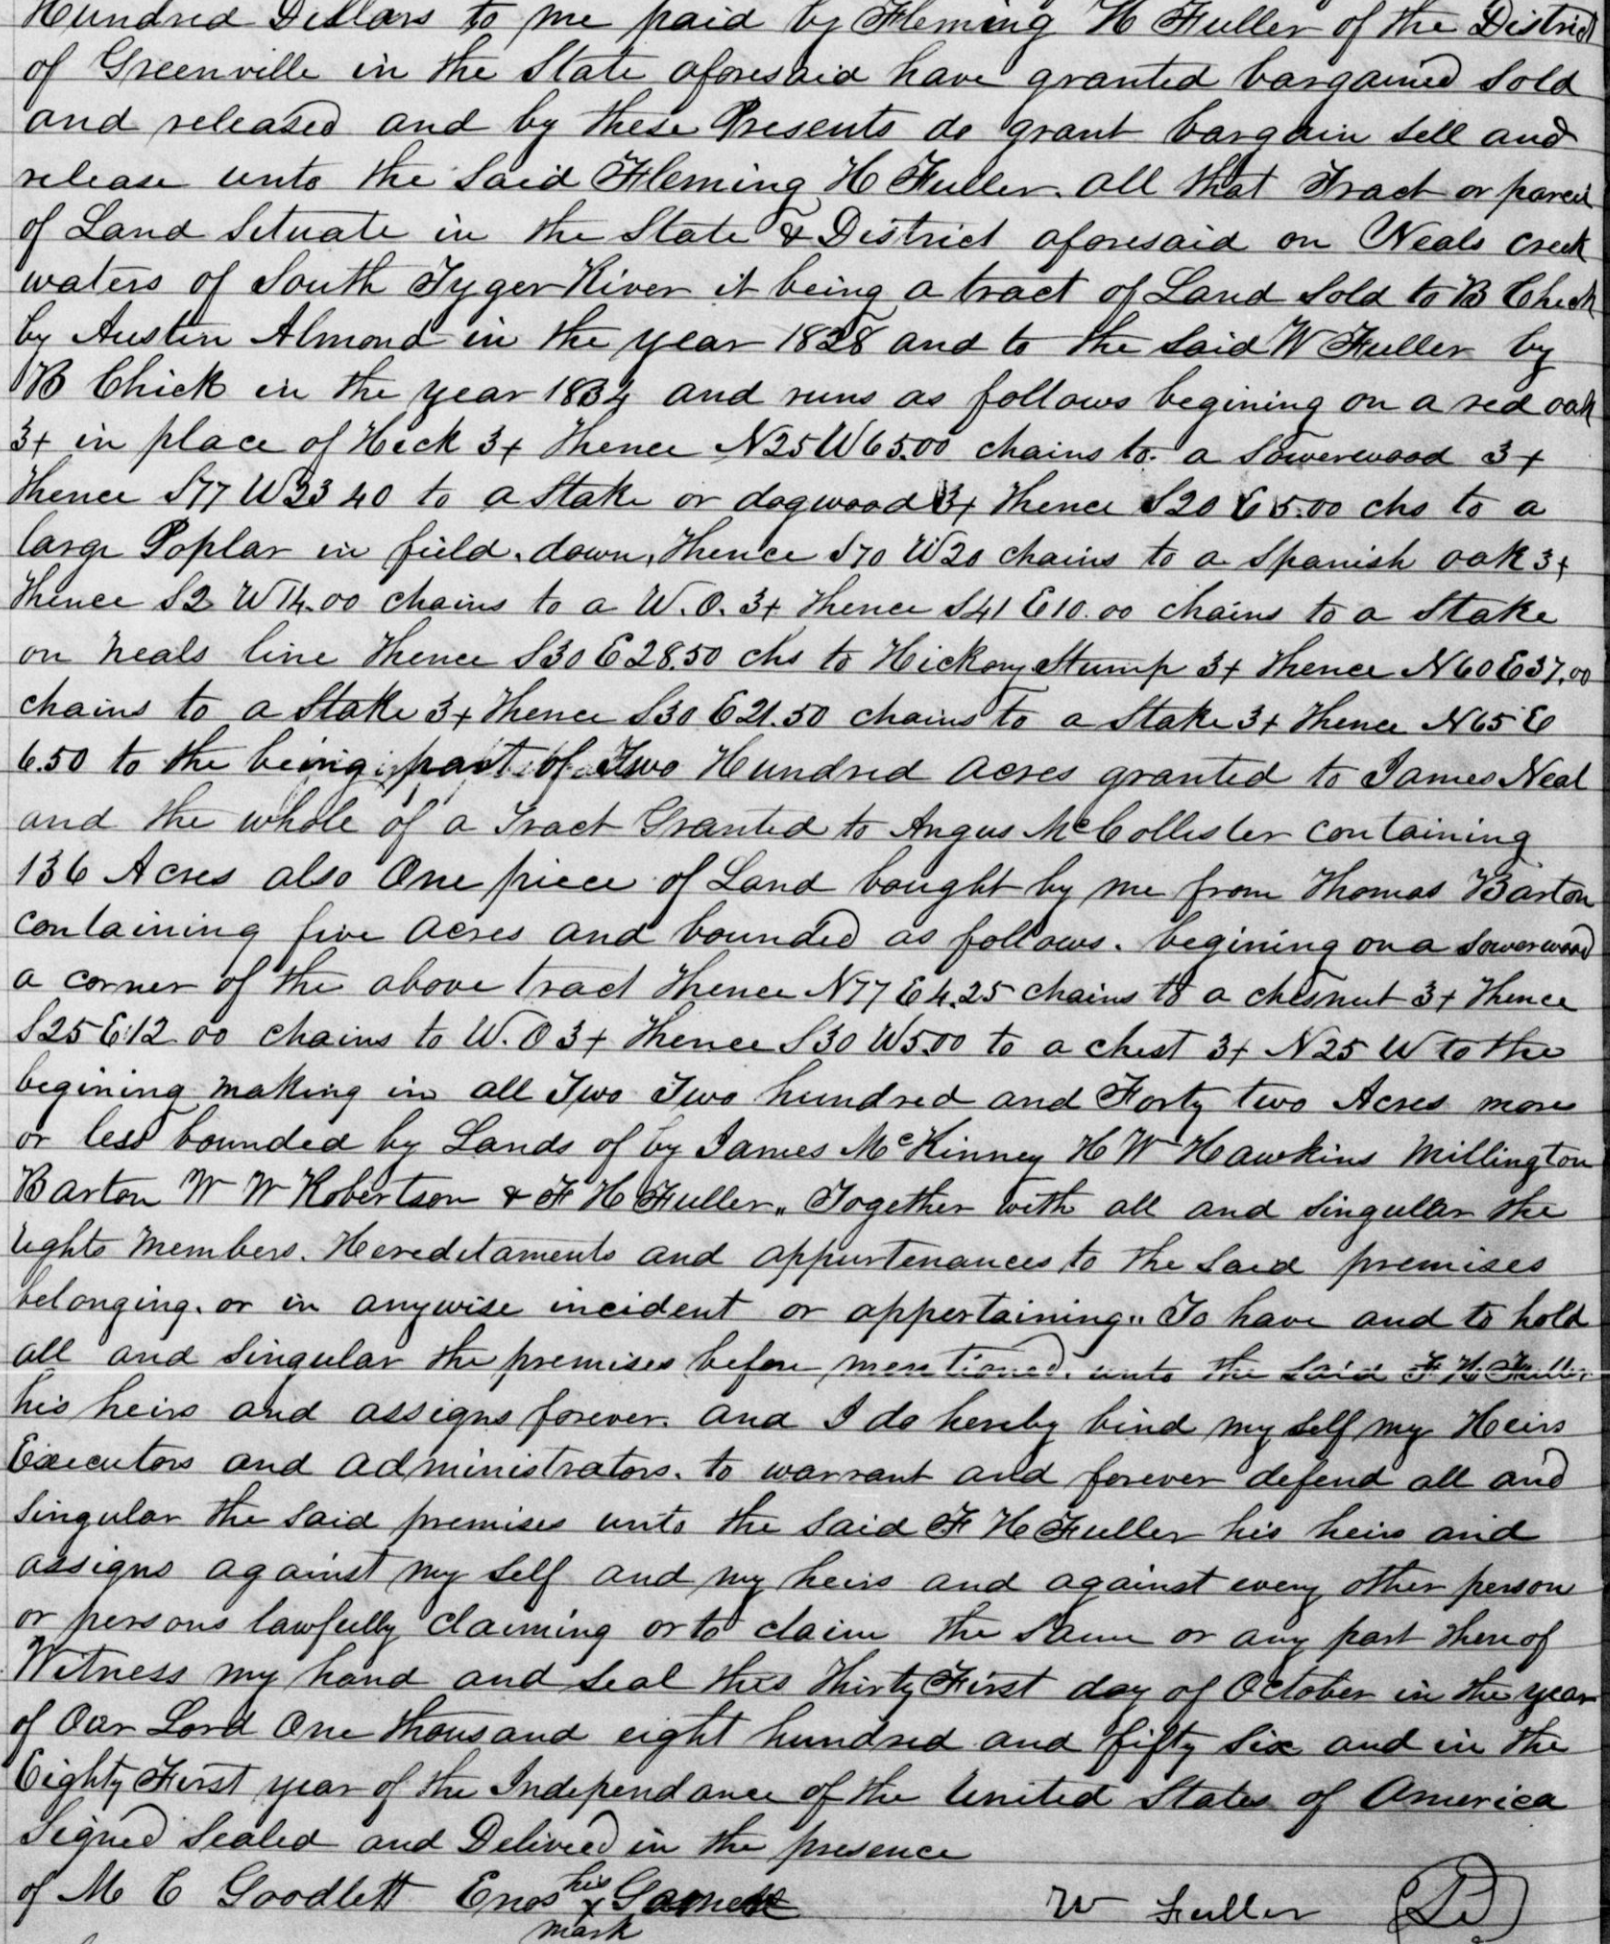 Hundred Dollars to me paid by Fleming H Fuller of the District
of Greenville in the State aforesaid have granted bargained Sold
and released and by these Presents do grant bargain sell and
release unto the Said Fleming H Fuller. all that Tract or parcel
of Land Situate in the State & District aforesaid on Neals creek
waters of South Tyger River it being a tract of Land Sold to B Chick
by Austin Almond in the year 1828 and to the Said W Fuller by
B Chick in the year 1834 and runs as follows begining on a red oak
3+ in place of Hick 3+ Thence N25 W65.00 chains to a Sowerwood 3+
Thence S77 W23 40 to a Stake or dogwood 3+ Thence S20 E5.00 chs to a
large Poplar in field. down, Thence S70 W20 chains to a Spanish oak 3+
Thence S2 W14.00 chains to a W.O. 3+ Thence S41 E10.00 chains to a Stake
on Neals line Thence S30 E28.50 chs to Hickory Stump 3+ Thence N60 E37.00
chains to a Stake 3+ Thence S30 E21.50 chains to a Stake 3+ Thence N65 E
6.50 to the being part of Two Hundred acres granted to James Neal
and the whole of a Tract Granted to Angus McCollister containing
136 Acres also One piece of Land bought by me from Thomas Barton
containing five acres and bounded as follows. begining on a Sowerwood
a corner of the above tract Thence N77 E4.25 chains to a chesnut 3+ Thence
S25 E12.00 chains to W.O 3+ Thence S30 W5.00 to a chest 3+ N25 W to the
begining making in all Two Two hundred and Forty two Acres more
or less bounded by Lands of by James McKinney H W Hawkins Millington
Barton W W Robertson & F H Fuller,, Together with all and Singular the
rights Members. Hereditaments and appurtenances to the Said premises
belonging. or in anywise incident or appertaining,, To have and to hold
all and Singular the premises before mentioned. unto the Said F H Fuller
his heirs and assigns forever. and I do hereby bind my self my Heirs
Executors and administrators. to warrant and forever defend all and
Singular the Said premises unto the Said F H Fuller his heirs and
assigns against my Self and my heirs and against every other person
or persons lawfully claiming or to claim the Same or any part thereof
Witness my hand and Seal this Thirty First day of October in the year
of Our Lord One thousand eight hundred and fifty Six and in the
Eighty First year of the Independance of the United States of America
Signed Sealed and Delivered in the presence
of M C Goodlett Enos his x mark W Fuller